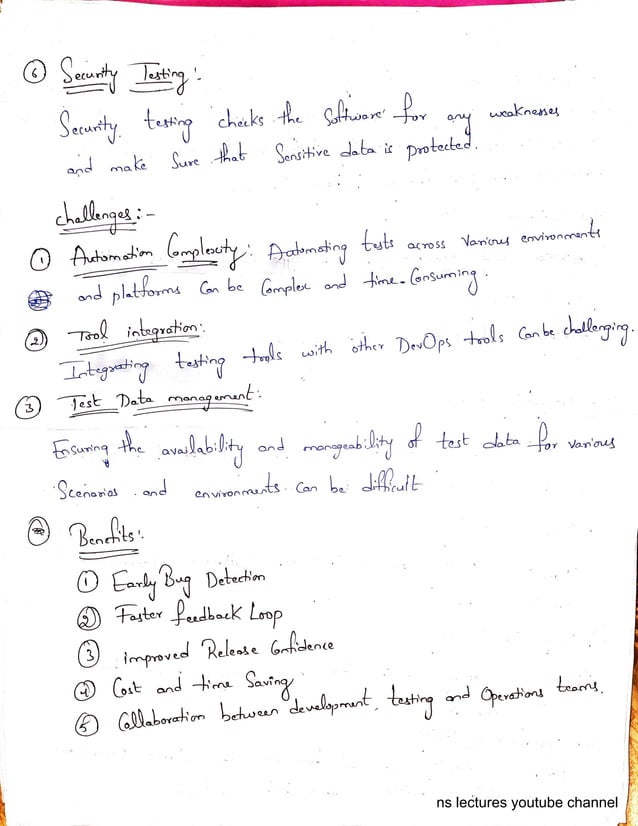 ⑥ Security Testing :-
Security testing checks the Software for any weaknesses
and make Sure that Sensitive data is protected.
challenges :-
① Automation Complexity : Automating tests across Various environments
and platforms Can be Complex and time-Consuming.
② Tool integration :
Integrating testing tools with other DevOps tools Can be challenging.
③ Test Data management :
Ensuring the availability and manageability of test data for various
Scenarios and environments Can be difficult
Benefits :
① Early Bug Detection
② Faster feedback Loop
③ improved Release Confidence
④ Cost and time Saving
⑤ Collaboration between development, testing and Operations teams.
ns lectures youtube channel